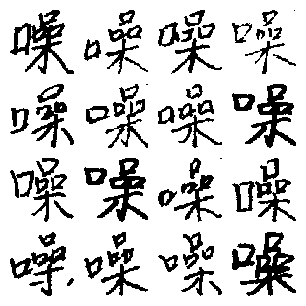 噪噪噪噪
噪噪噪噪
噪噪噪噪
噪噪噪噪